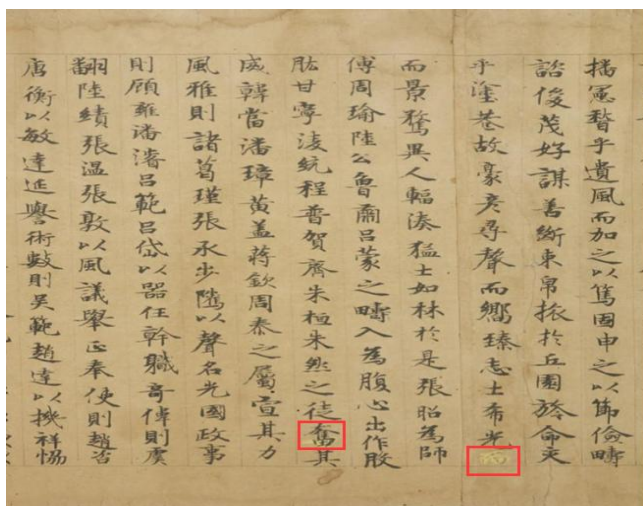 播憲稽乎遺風而加之以篤固申之以節儉疇
諮俊茂好謀善斷束帛旅於丘園旌命交
乎塗巷故豪彦尋聲而嚮臻志士希光
而景騖異人輻湊猛士如林於是張昭為師
傅周瑜陸公魯肅呂蒙之疇入為腹心出作股
肱甘寧淩統程普賀齊朱桓朱然之徒奮其
威韓當潘璋黃盖蔣欽周泰之屬宣其力
風雅則諸葛瑾張承步隲以聲名光國政事
則顧雍潘濬呂範呂岱以器任幹職奇偉則虞
翻陸績張温張敦以風議舉正奉使則趙咨
唐衡以敏達延譽術數則吳範趙達以機祥協